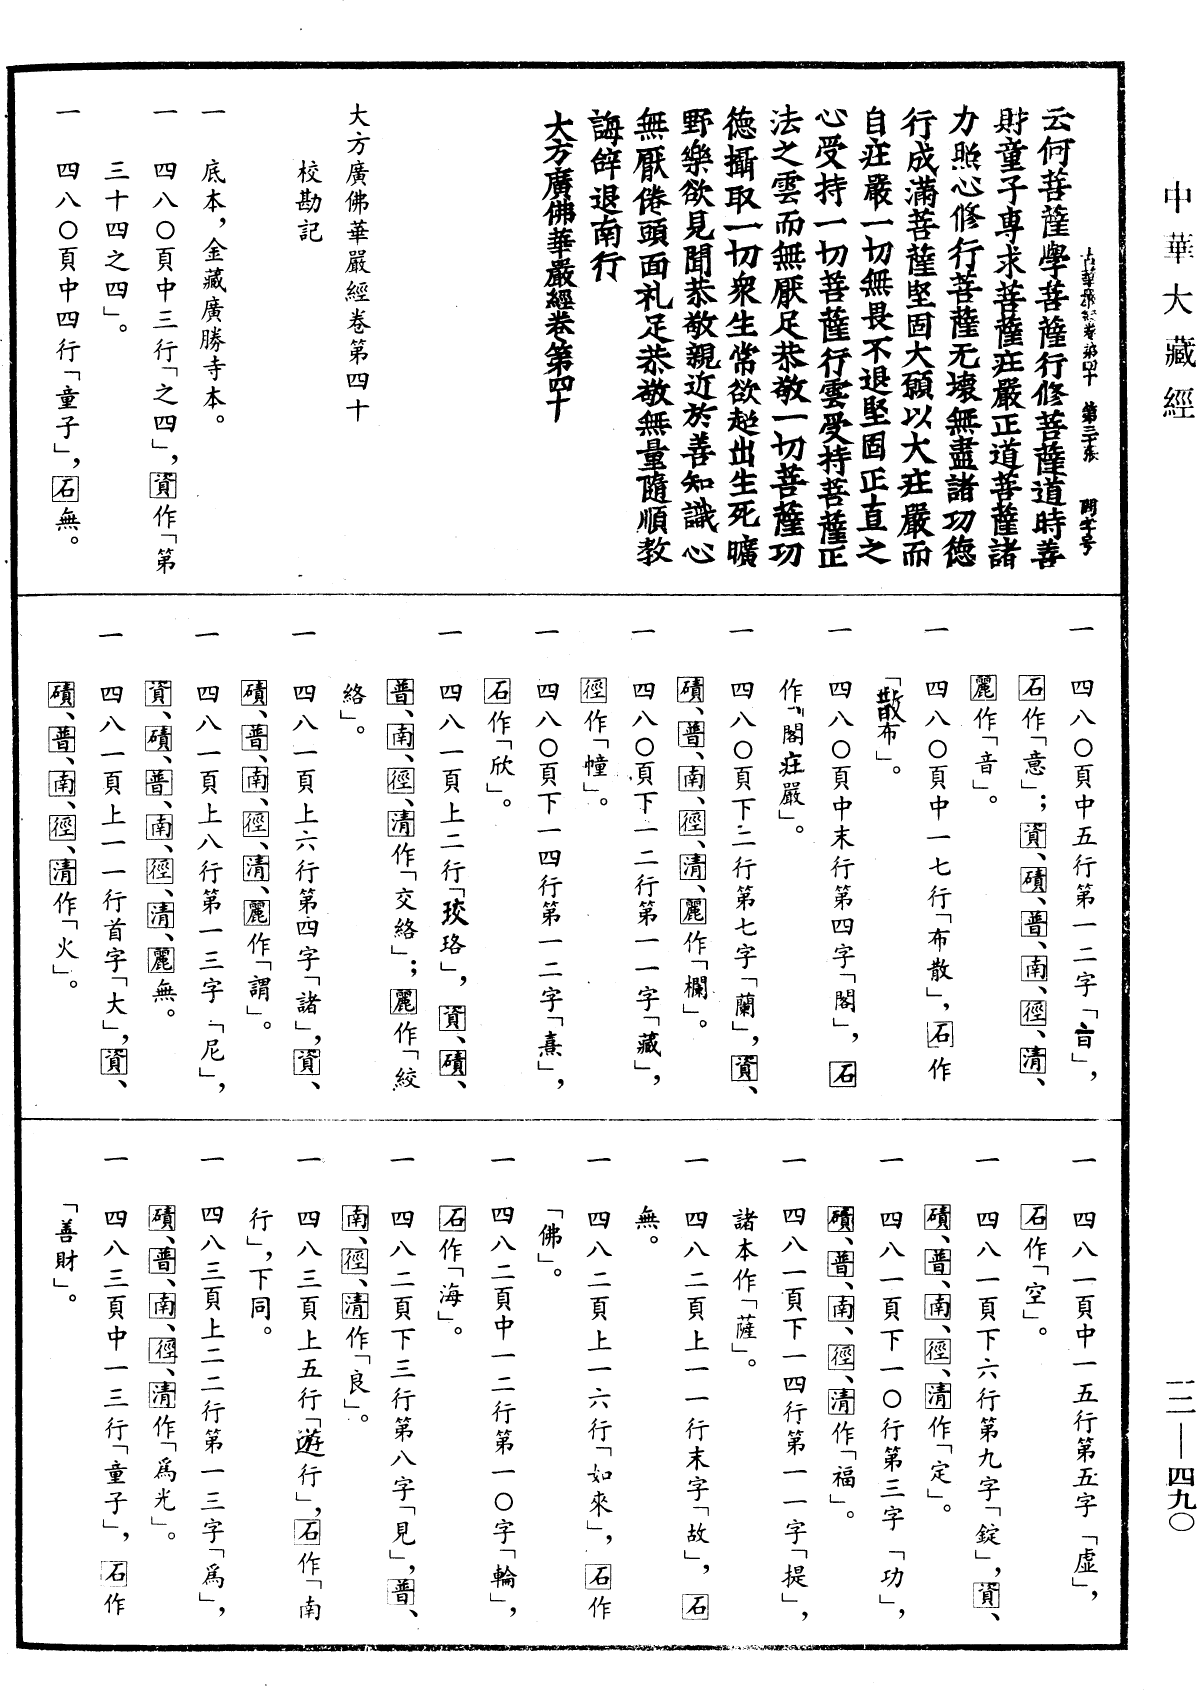 中華大藏經
云何菩薩學菩薩行修菩薩道時善
財童子專求菩薩疰嚴正道菩薩諸
力照心修行菩薩无壞無盡諸功德
行成滿菩薩堅固大願以大疰嚴而
自疰嚴一切無畏不退堅固正直之
心受持一切菩薩行雲受持菩薩正
法之雲而無厭足恭敬一切菩薩功
德攝取一切衆生常欲超出生死曠
野樂欲見聞恭敬親近於善知識心
無厭倦頭面礼足恭敬無量隨順教
誨辞退南行
大方廣佛華嚴經卷第四十
大方廣佛華嚴經卷第四十
校勘記
一 底本，金藏廣勝寺本。
一 四八〇頁中三行「之四」，資作「第
三十四之四」。
一 四八〇頁中四行「童子」，石無。
一 四八〇頁中五行第一二字「㫖」，
石作「意」；資、磧、普、南、徑、清、
麗作「音」。
一 四八〇頁中一七行「布散」，石作
「散布」。
一 四八〇頁中末行第四字「閣」，石
作「閣疰嚴」。
一 四八〇頁下二行第七字「蘭」，資、
磧、普、南、徑、清、麗作「欄」。
一 四八〇頁下一二行第一一字「藏」，
徑作「幢」。
一 四八〇頁下一四行第一二字「熹」，
石作「欣」。
一 四八一頁上二行「珓珞」，資、磧、
普、南、徑、清作「交絡」；麗作「絞
絡」。
一 四八一頁上六行第四字「諸」，資、
磧、普、南、徑、清、麗作「謂」。
一 四八一頁上八行第一三字「尼」，
資、磧、普、南、徑、清、麗無。
一 四八一頁上一一行首字「大」，資、
磧、普、南、徑、清作「火」。
一 四八一頁中一五行第五字「虛」，
石作「空」。
一 四八一頁下六行第九字「錠」，資、
磧、普、南、徑、清作「定」。
一 四八一頁下一〇行第三字「功」，
磧、普、南、徑、清作「福」。
一 四八一頁下一四行第一一字「提」，
諸本作「薩」。
一 四八二頁上一一行末字「故」，石
無。
一 四八二頁上一六行「如來」，石作
「佛」。
一 四八二頁中一二行第一〇字「輪」，
石作「海」。
一 四八二頁下三行第八字「見」，普、
南、徑、清作「良」。
一 四八三頁上五行「遊行」，石作「南
行」，下同。
一 四八三頁上二二行第一三字「爲」，
磧、普、南、徑、清作「爲光」。
一 四八三頁中一三行「童子」，石作
「善財」。
一二—四九〇